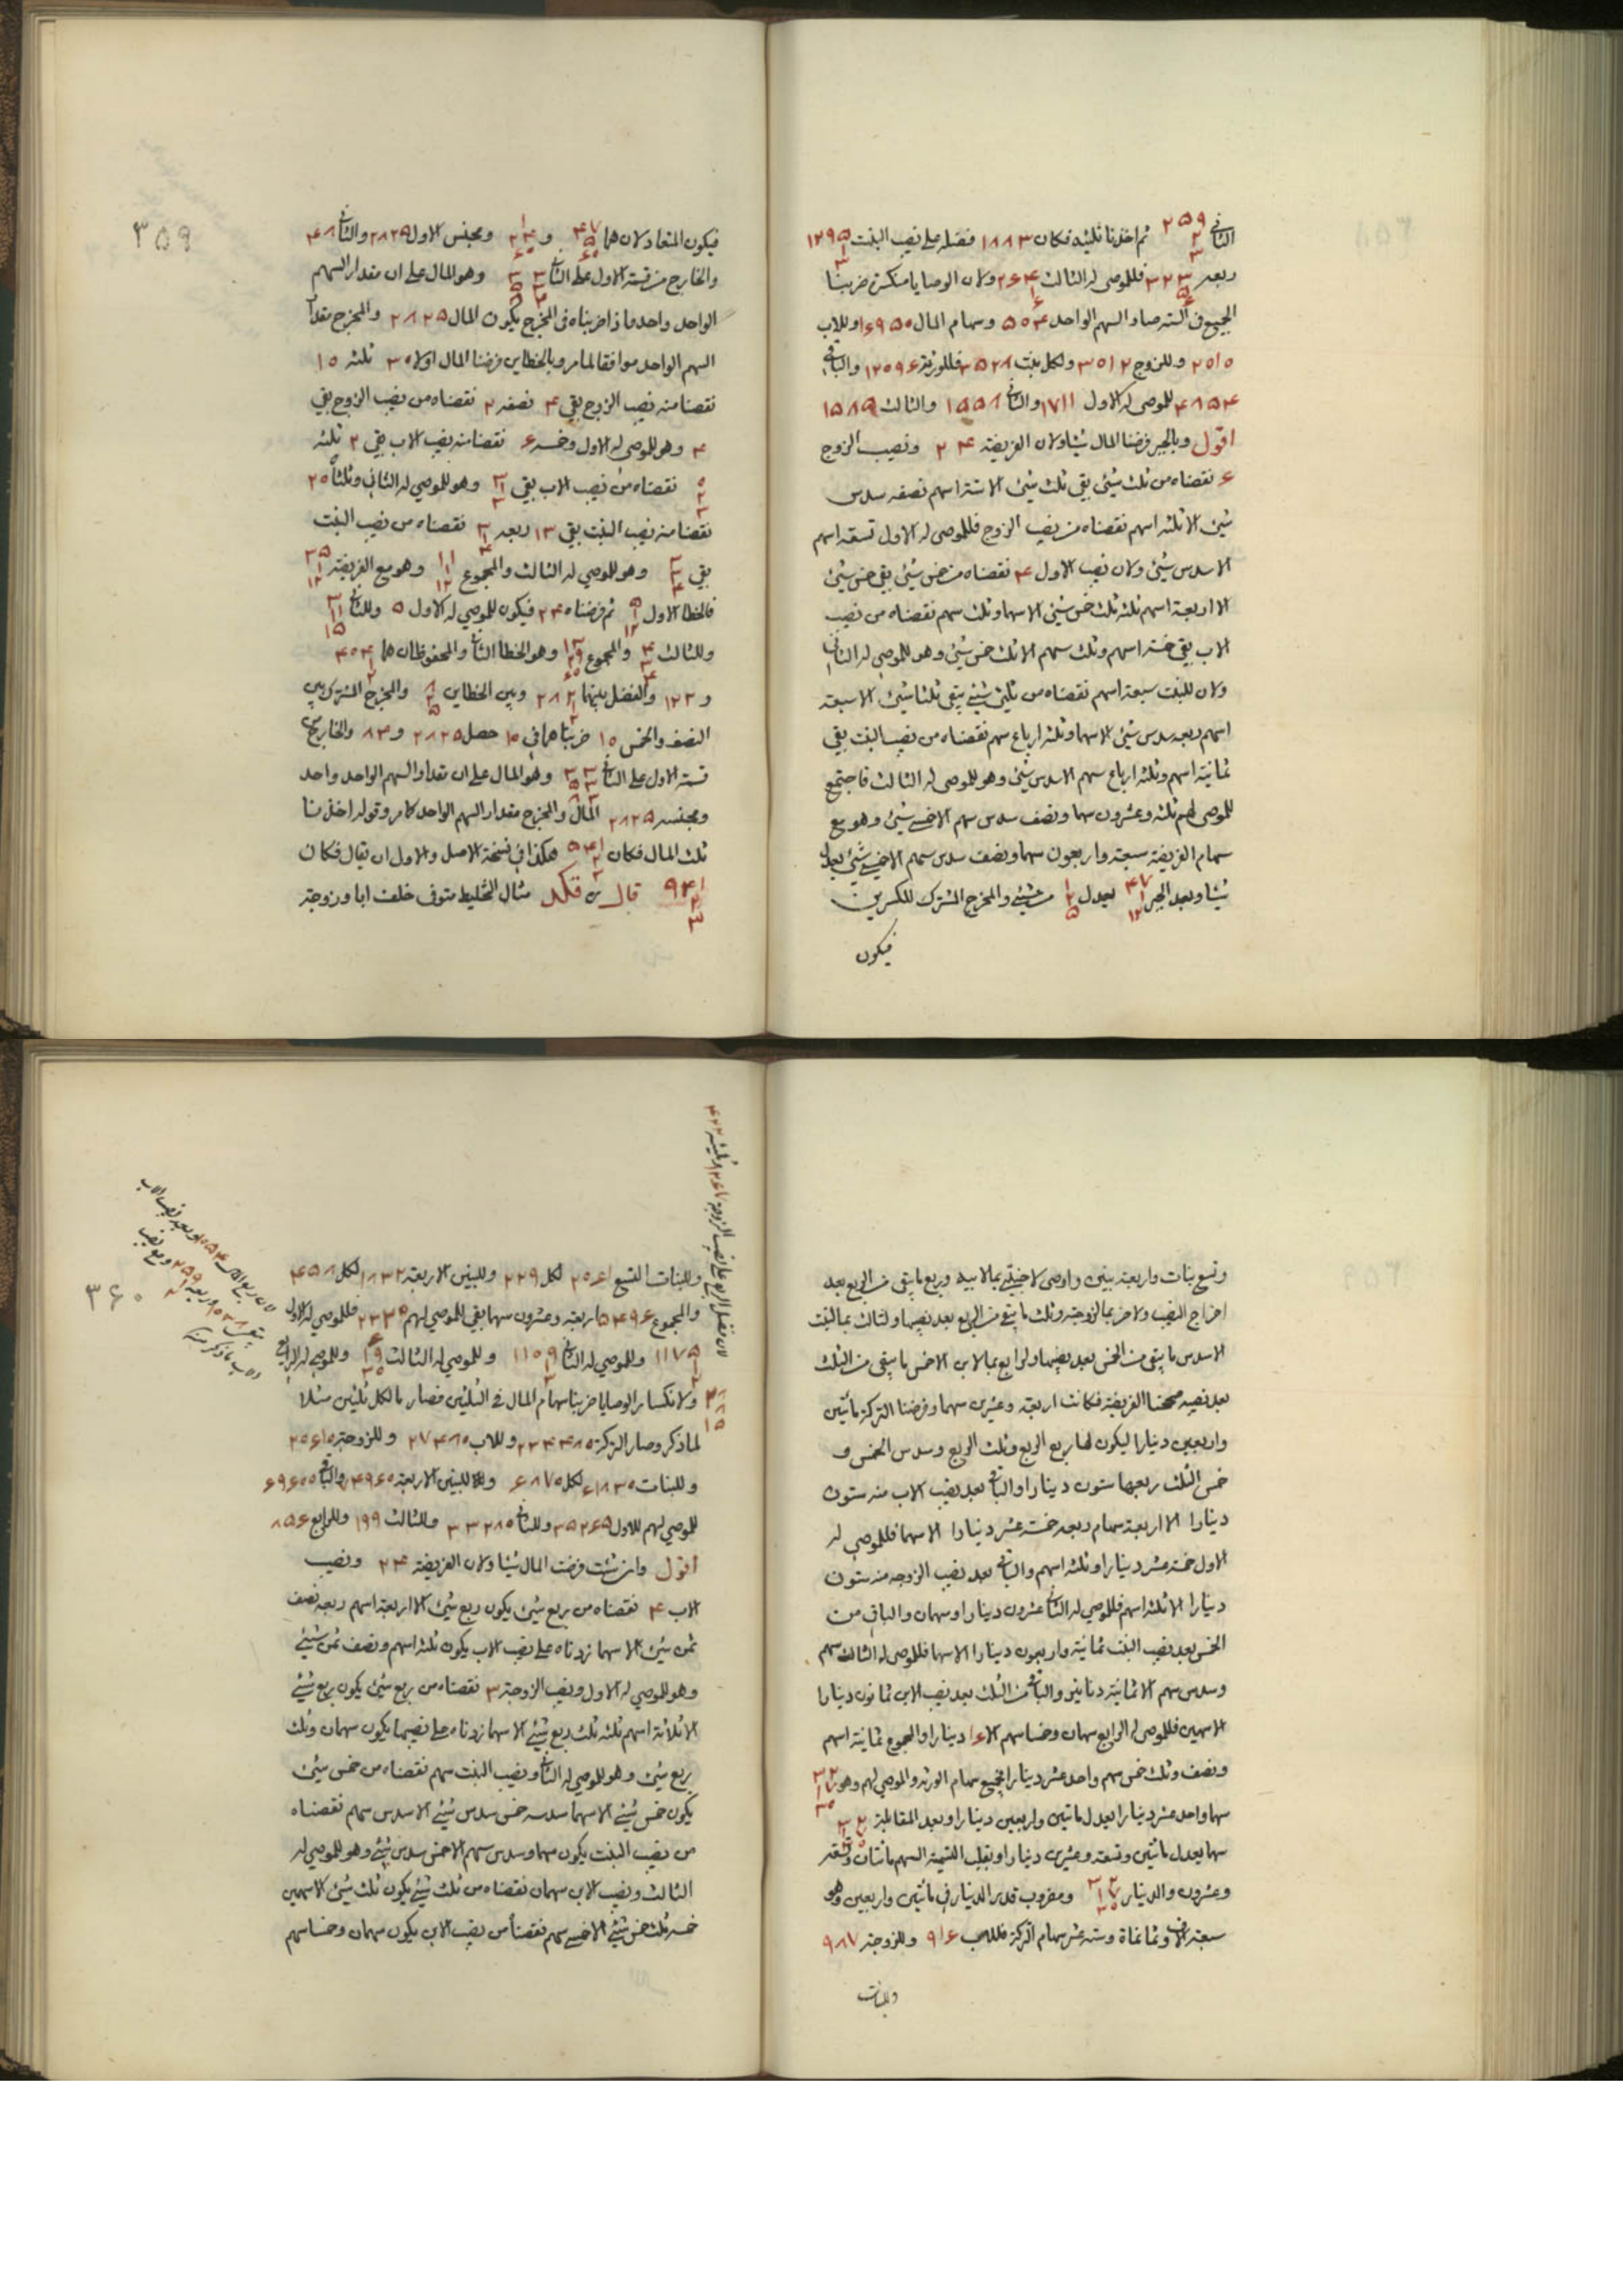 الثانى ٢٥٩ ٢ ٣ ثم اخذنا ثلثيه فكان ١٨٨٣ فضله على نصيب البنت ١٢٩٥
ربعه ٣٢٣ فللموصى له الثالث ٢٦٤ ولان الوصايا منكسرة ضربنا
الجميع فى الستة صار السهم الواحد ٥٠٤ وسهام المال ١٦٩٥٠ وللاب
٢٠١٥ وللزوج ٣٠١٢ ولكل بنت ٣٥٢٨ فللورثة ١٢٠٩٦ والباقى
٤٨٥٤ للموصى له الاول ١٧١١ والثانى ١٥٥٨ والثالث ١٥٨٥
اقول وبالجبر فرضنا المال شيئا ولان الفريضة ٢٤ ونصيب الزوج
٦ نقصناه من ثلث شيئ بقى ثلث شيئ الا ستة اسهم نصفه سدس
شيئ الا ثلثة اسهم نقصناه من نصيب الزوج فللموصى له الاول تسعة اسهم
الا سدس شيئ ولان نصيب الاول ٤ نقصناه من خمس شيئ بقى خمس شيئ
الا اربعة اسهم ثلثه ثلث خمس شيئ الا سهما وثلث سهم نقصناه من نصيب
الاب بقى خمسة اسهم وثلث سهم الا ثلث خمس شيئ وهو للموصى له الثانى
ولان للبنت سبعة اسهم نقصناه من ثلثى شيئ يبقى ثلثا شيئ الا سبعة
اسهم ربعه سدس شيئ الا سهما وثلثة ارباع سهم نقصناه من نصيب البنت بقى
ثمانية اسهم وثلثة ارباع سهم الا سدس شيئ وهو للموصى له الثالث فاجتمع
للموصى لهم ثلثة وعشرون سهما ونصف سدس سهم الا خمسى شيئ وهو مع
سهام الفريضة سبعة واربعون سهما ونصف سدس سهم الا خمسى شيئ يعدل
شيئا وبعد الجبر ٤٧ ١ ١٢ يعدل ١ ٢ ٥ من شيئ والمخرج المشترك للكسرين
فيكون
٣٥٩
فيكون المتعادلان هما ٤٧ ٥ ٦٠ و ١ ٢٤ ٦٠ ومجنس الاول ٢٨٢٥ والثانى ٨٤
والخارج من قسمة الاول على الثانى ٣٣ وهو المال على ان مقدار السهم
الواحد واحد فاذا ضربناه فى المخرج يكون المال ٢٨٢٥ والمخرج مقدار
السهم الواحد موافقا لما مر وبالخطاين فرضنا المال اولا ٣٠ ثلثه ١٠
نقصنا منه نصيب الزوج بقى ٤ نصفه ٢ نقصناه من نصيب الزوج بقى
٤ وهو للموصى له الاول وخمسه ٦ نقصنا منه نصيب الاب بقى ٢ ثلثه
٠ ٢ ٣ نقصناه من نصيب الاب بقى ٣ ١ ٣ وهو للموصى له الثانى وثلثاه ٢٠
نقصنا منه نصيب البنت بقى ١٣ ربعه ٣ ١ ٤ نقصناه من نصيب البنت
بقى ٣ ٣ ٤ وهو للموصى له الثالث والمجموع ١١ ١ ١٢ وهو مع الفريضة ٣٥ ١ ١٢
فالخطا الاول ٥ ١ ١٢ ثم فرضناه ٢٤ فيكون للموصى له الاول ٥ وللثانى ٣ ١١ ١٥
وللثالث ٤ ٣ ٤ والمجموع ١٣ ٢٩ ٦٠ وهو الخطا الثانى والمحفوظان هما ٤٠٤ ١ ٢
و ١٢٢ والفضل بينهما ٢٨٢ ١ ٢ وبين الخطاين ٨ ٢ ٥ والمخرج المشترك بين
النصف والخمس ١٠ ضربناهما فى ١٠ حصل ٢٨٢٥ و ٨٤ والخارج من
قسمة الاول على الثانى ٣٣ وهو المال على ان مقدار السهم الواحد واحد
ومجنسه ٢٨٢٥ المال والمخرج مقدار السهم الواحد كما مر وقوله اخذنا
ثلث المال فكان هكذا فى نسخة الاصل والاولى ان يقال فكان
٩٤١ ٢ ٣ قال مثال التخليط متوفى خلف ابا وزوجة
وتسع بنات واربعة بنين واوصى لاجنبى بمالابيه وربع ما يبقى من الربع بعد
اخراج النصيب ولاخر بما لزوجته وثلث ما يبقى من الربع بعد نصيبها ولثالث بما لبنت
الا سدس ما يبقى من الخمس بعد نصيبها ولرابع بما لابن الا خمس ما يبقى من الثلث
بعد نصيبه صححنا الفريضة فكانت اربعة وعشرين سهما وفرضنا التركة مائتين
واربعين دينارا ليكون لها ربع الربع وثلث الربع وسدس الخمس و
خمس الثلث ربعها ستون دينارا والباقى بعد نصيب الاب منه ستون
دينارا الا اربعة سهام ربعه خمسة عشر دينارا الا سهما فللموصى له
الاول خمسة عشر دينارا وثلثة اسهم والباقى بعد نصيب الزوجه منه ستون
دينارا الا ثلثة اسهم فللموصى له الثانى عشرون دينارا وسهمان والباقى من
الخمس بعد نصيب البنت ثمانية واربعون دينارا الا سهما فللموصى له الثالث سهم
وسدس سهم الا ثمانية دنانير والباقى من الثلث بعد نصيب الابن ثمانون دينارا
الا سهمين فللموصى له الرابع سهمان وخمسا سهم الا ١٦ دينارا والمجموع ثمانية اسهم
ونصف وثلث خمس سهم واحد عشر دينارا فجميع سهام الورثة والموصى لهم وهو ٣٢ ١٧ ٣٠
سهما واحد عشر دينارا يعدل مائتين واربعين دينارا وبعد المقابلة
سهما يعدل مائتين وتسعة وعشرين دينارا وبقلب القسمة السهم مائتان وتسعة
وعشرون والدينار ٣٢ ١٧ ٣٠ ومضروب قدر الدينار فى مائتين واربعين وهو
سبعة الاف وثمانمائة وستة عشر سهام التركة فللاب ٩١٦ وللزوجة ٦٨٧
وللبنات
٣٦٠
وللبنات التسع ٢٠٦١ لكل ٢٢٩ وللبنين الاربعة ١٨٣٢ لكل ٤٥٨
والمجموع ٥٤٩٦ اربعة وعشرون سهما بقى للموصى لهم ٢٣٢٠ فللموصى له الاول
١١٧٥ ١ ٢ وللموصى له الثانى ١١٠٩ ١ ٢ وللموصى له الثالث ٦ ١٩ ٣٠ وللموصى له الرابع
٢٨ ٨ ١٥ ولانكسار الوصايا ضربنا سهام المال فى الثلثين فصار مالكل ثلثين مثلا
لما ذكر وصار التركة ٢٣٤٤٨٠ وللاب ٢٧٤٨٠ وللزوجة ٢٠٦١٠
وللبنات ٦١٨٣٠ لكل ٦٨٧٠ وللبنين الاربعة ٥٤٩٦٠ والباقى ٦٩٦٠٠
للموصى لهم للاول ٣٥٢٦٥ وللثانى ٣٣٢٨٥ وللثالث ١٩٩ وللرابع ٨٥٦
اقول وان شئت فرضت المال شيئا ولان الفريضة ٢٤ ونصيب
الاب ٤ نقصناه من ربع شيئ يكون ربع شيئ الا اربعة اسهم ربعه نصف
ثمن شيئ الا سهما زدناه على نصيب الاب يكون ثلثة اسهم ونصف ثمن شيئ
وهو للموصى له الاول ونصيب الزوجة ٣ نقصناه من ربع شيئ يكون ربع شيئ
الا ثلاثة اسهم ثلثه ثلث ربع شيئ الا سهما زدناه على نصيبها يكون سهمان وثلث
ربع شيئ وهو للموصى له الثانى ونصيب البنت سهم نقصناه من خمس شيئ
يكون خمس شيئ الا سهما سدسه خمس سدس شيئ الا سدس سهم نقصناه
من نصيب البنت يكون سهما وسدس سهم الا خمس سدس شيئ وهو للموصى له
الثالث ونصيب الابن سهمان نقصناه من ثلث شيئ يكون ثلث شيئ الا سهمين
خمسه ثلث خمس شيئ الا خمسى سهم نقصناه من نصيب الابن يكون سهمان وخمسا سهم